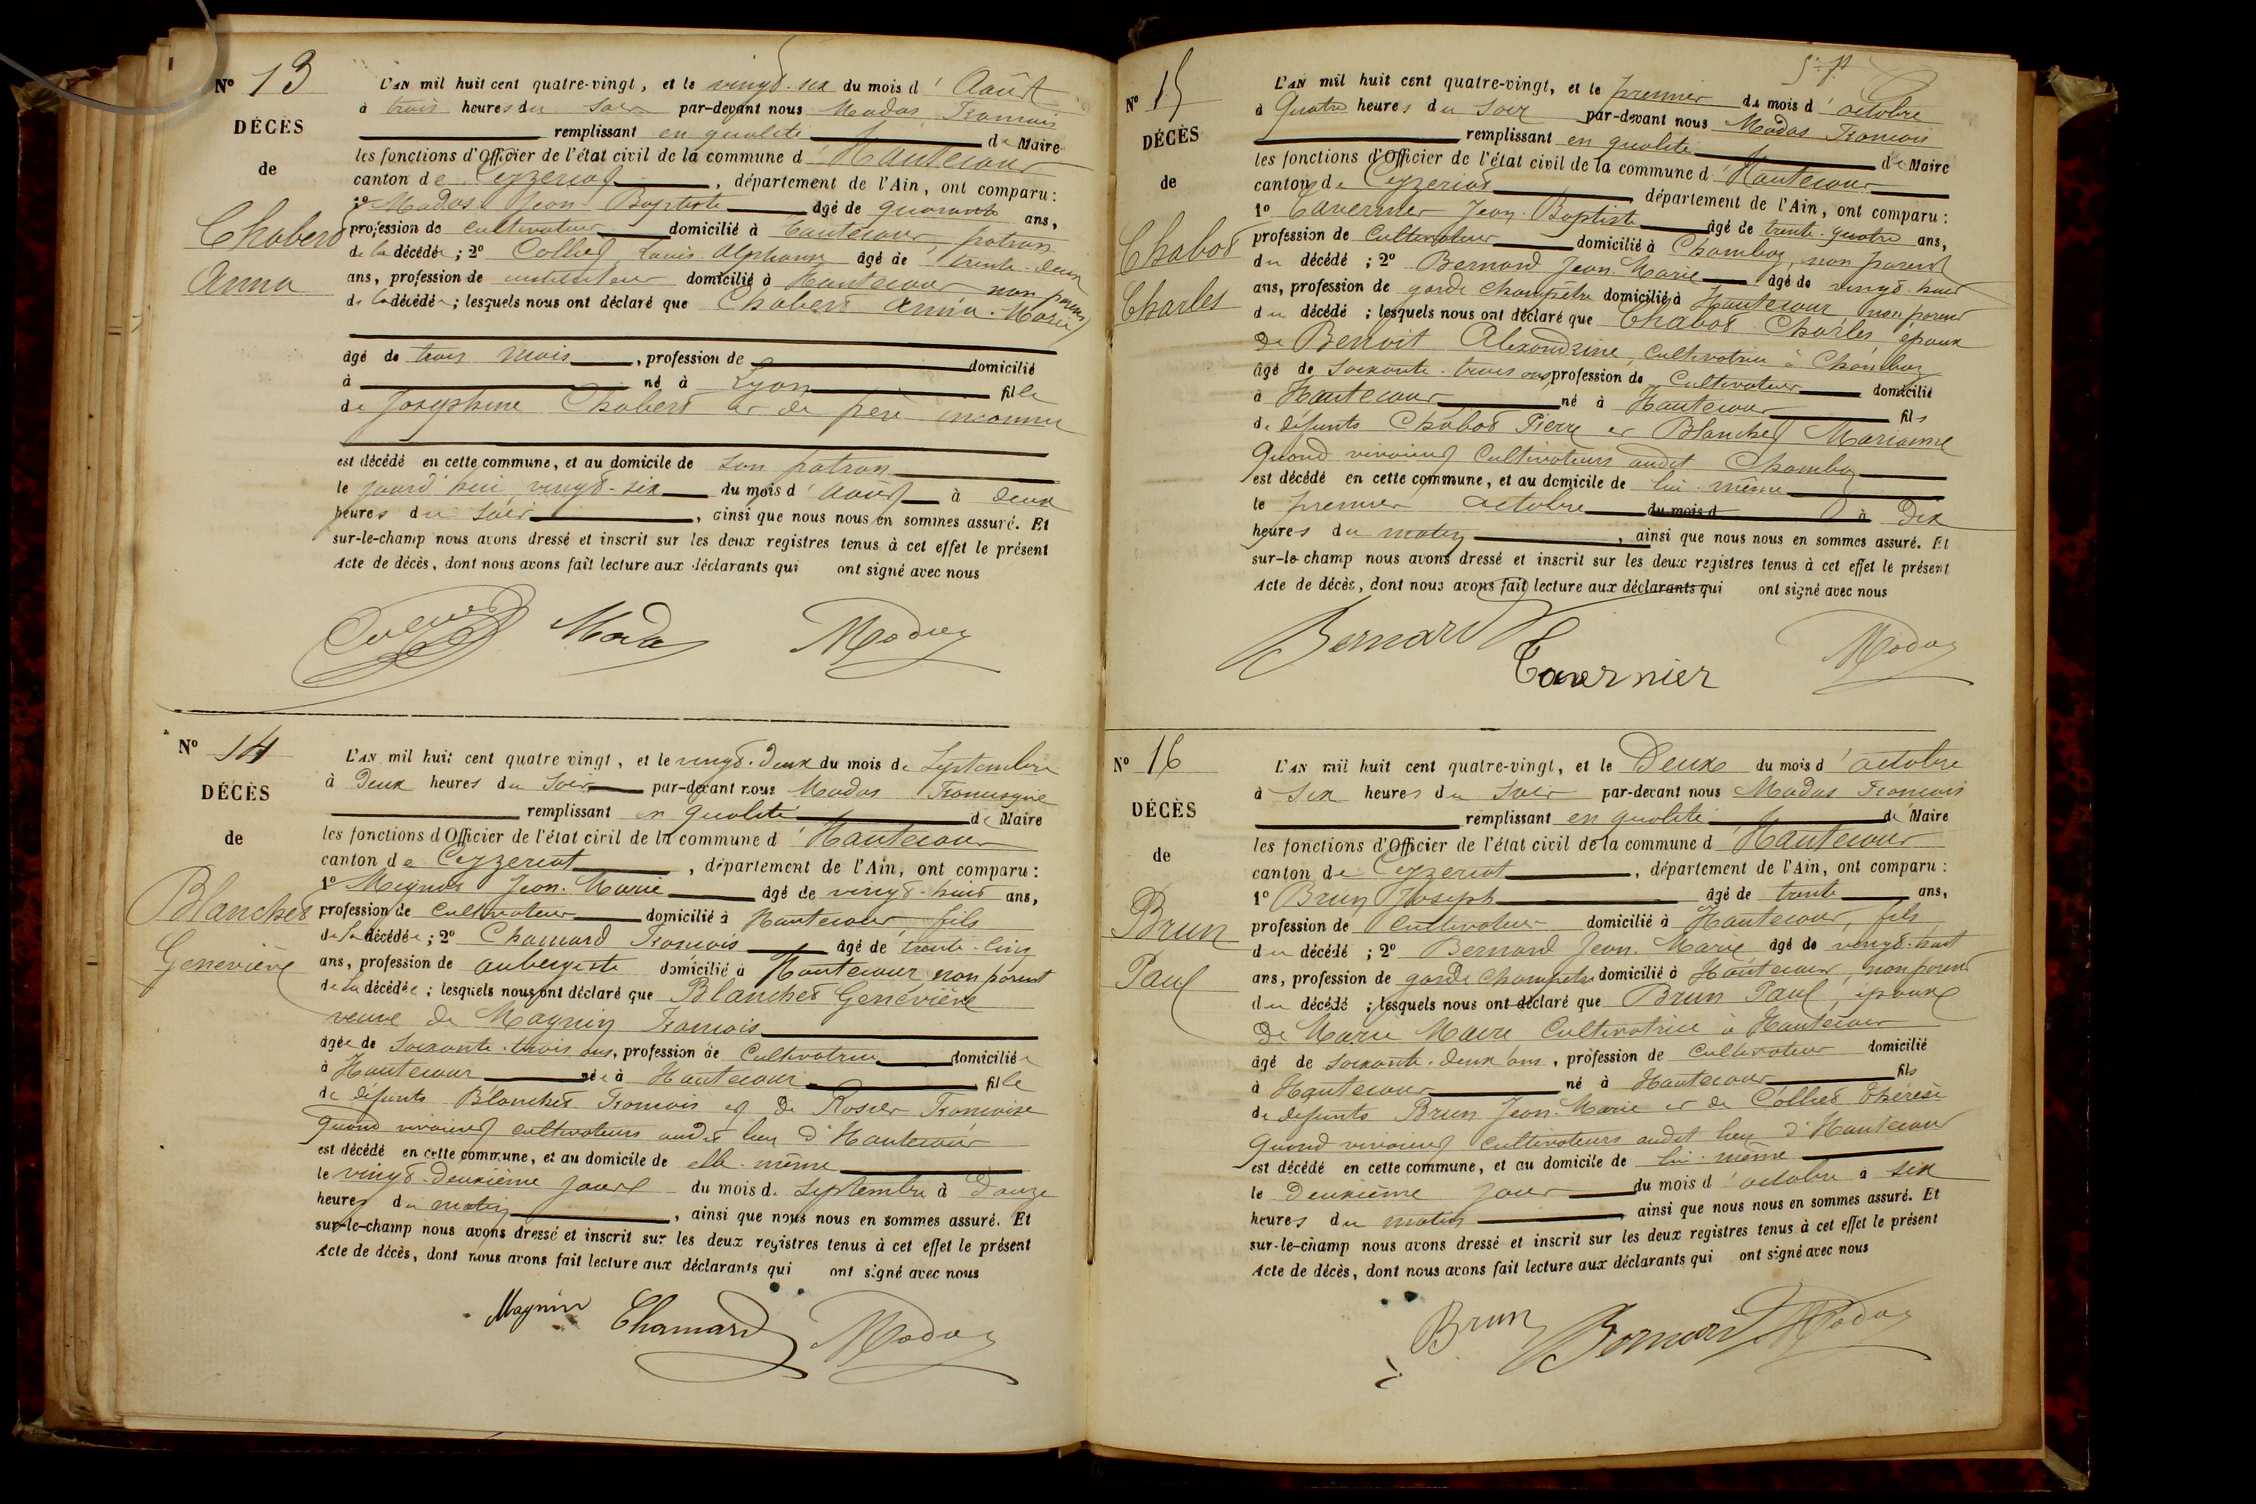 N° 13
DÉCÈS
de
Chabert
Anna
L'AN mil huit cent quatre-vingt, et le vingt-six du mois d'Août
à trois heures du soir par-devant nous Modas François
remplissant en qualité de Maire
les fonctions d'Officier de l'état civil de la commune d'Hautecour
canton de Ceyzeriat, département de l'Ain, ont comparu :
1° Modas Jean Baptiste âgé de quarante ans,
profession de cultivateur domicilié à hautecour, patron
de la décédée ; 2° Collet Louis Alphonse âgé de trente-deux
ans, profession de instituteur domicilié à Hautecour non parent
de la décédée ; lesquels nous ont déclaré que Chabert Anna-Marie
âgé de trois mois, profession de domicilié
à né à Lyon fille
de Joséphine Chabert et de père inconnu
est décédé en cette commune, et au domicile de son patron
le jourd'hui vingt-six du mois d'août à deux
heures du soir, ainsi que nous nous en sommes assuré. Et
sur-le-champ nous avons dressé et inscrit sur les deux registres tenus à cet effet le présent
Acte de décès, dont nous avons fait lecture aux déclarants qui ont signé avec nous
Moda Modas
N° 14
DÉCÈS
de
Blanchet
Geneviève
L'AN mil huit cent quatre vingt, et le vingt-deux du mois de Septembre
à Deux heures du Soir par-devant nous Modas
remplissant en qualité de Maire
les fonctions d'Officier de l'état civil de la commune d'Hautecour
canton de Ceyzeriat, département de l'Ain, ont comparu :
1° Magnin Jean-Marie âgé de vingt-huit ans,
profession de Cultivateur domicilié à Hautecour fils
de la décédée ; 2° Chamard François âgé de trente-cinq
ans, profession de aubergiste domicilié à Hautecour non parent
de la décédée ; lesquels nous ont déclaré que Blanchet Geneviève
veuve de Magnin François
âgée de Soixante-trois ans, profession de Cultivatrice domiciliée
à Hautecour née à Hautecour fille
de défunts Blanchet François et de Rosier Françoise
quand vivaient cultivateurs audit lieu d'Hautecour
est décédé en cette commune, et au domicile de elle-même
le vingt-Deuxième jour du mois de Septembre à Douze
heures du matin, ainsi que nous nous en sommes assuré. Et
sur-le-champ nous avons dressé et inscrit sur les deux registres tenus à cet effet le présent
Acte de décès, dont nous avons fait lecture aux déclarants qui ont signé avec nous
Magnin Chamard Modas
N° 15
DÉCÈS
de
Chabot
Charles
L'AN mil huit cent quatre-vingt, et le premier du mois d'octobre
à Quatre heures du soir par-devant nous Modas François
remplissant en qualité de Maire
les fonctions d'Officier de l'état civil de la commune d'Hautecour
canton de Ceyzeriat département de l'Ain, ont comparu :
1° Tavernier Jean-Baptiste âgé de trente-quatre ans,
profession de Cultivateur domicilié à Chambog, non parent
du décédé ; 2° Bernard Jean-Marie âgé de vingt-huit
ans, profession de garde champêtre domicilié à Hautecour non parent
du décédé ; lesquels nous ont déclaré que Chabot Charles, époux
de Benoit Alexandrine, cultivatrice à Chambog
âgé de soixante-trois ans, profession de Cultivateur domicilié
à Hautecour né à Hautecour fils
de défunts Chabot Pierre et Blanchet Marianne
quand vivaient Cultivateurs audit Chambog
est décédé en cette commune, et au domicile de lui-même
le premier octobre du mois d à Dix
heures du matin, ainsi que nous nous en sommes assuré. Et
sur-le-champ nous avons dressé et inscrit sur les deux registres tenus à cet effet le présent
Acte de décès, dont nous avons fait lecture aux déclarants qui ont signé avec nous
Bernard Tavernier Modas
N° 16
DÉCÈS
de
Brun
Paul
L'AN mil huit cent quatre-vingt, et le Deux du mois d'octobre
à Six heures du Soir par-devant nous Modas François
remplissant en qualité de Maire
les fonctions d'Officier de l'état civil de la commune d'Hautecour
canton de Ceyzeriat, département de l'Ain, ont comparu :
1° Brun Joseph âgé de trente ans,
profession de Cultivateur domicilié à Hautecour, fils
du décédé ; 2° Bernard Jean-Marie âgé de vingt-huit
ans, profession de garde champêtre domicilié à Hautecour, non parent
du décédé ; lesquels nous ont déclaré que Brun Paul, époux
de Marie Maire Cultivatrice à Hautecour
âgé de soixante-deux ans, profession de Cultivateur domicilié
à Hautecour né à Hautecour fils
de défunts Brun Jean-Marie et de Collet Thérèse
quand vivaient cultivateurs audit lieu d'Hautecour
est décédé en cette commune, et au domicile de lui-même
le Deuxième jour du mois d'octobre à six
heures du matin, ainsi que nous nous en sommes assuré. Et
sur-le-champ nous avons dressé et inscrit sur les deux registres tenus à cet effet le présent
Acte de décès, dont nous avons fait lecture aux déclarants qui ont signé avec nous
Brun Bernard Modas